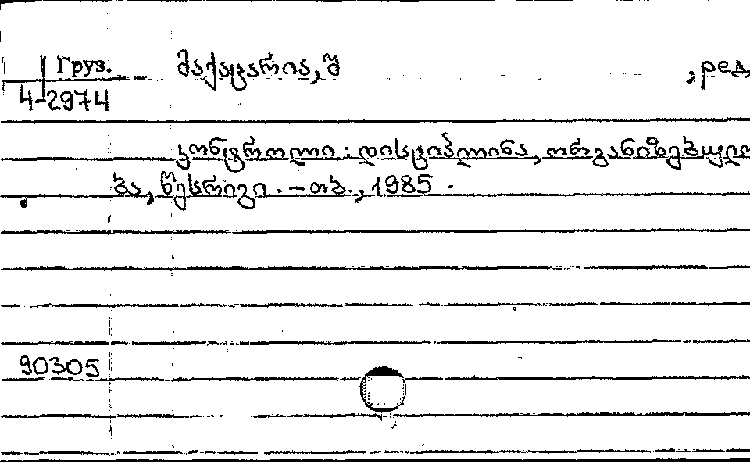 Груз. მაქაცარია, შ , ред
4-2974
კონტროლი : დისციპლინა, ორგანიზებულო
ბა, წესრიგი . – თბ., 1985 .
90305